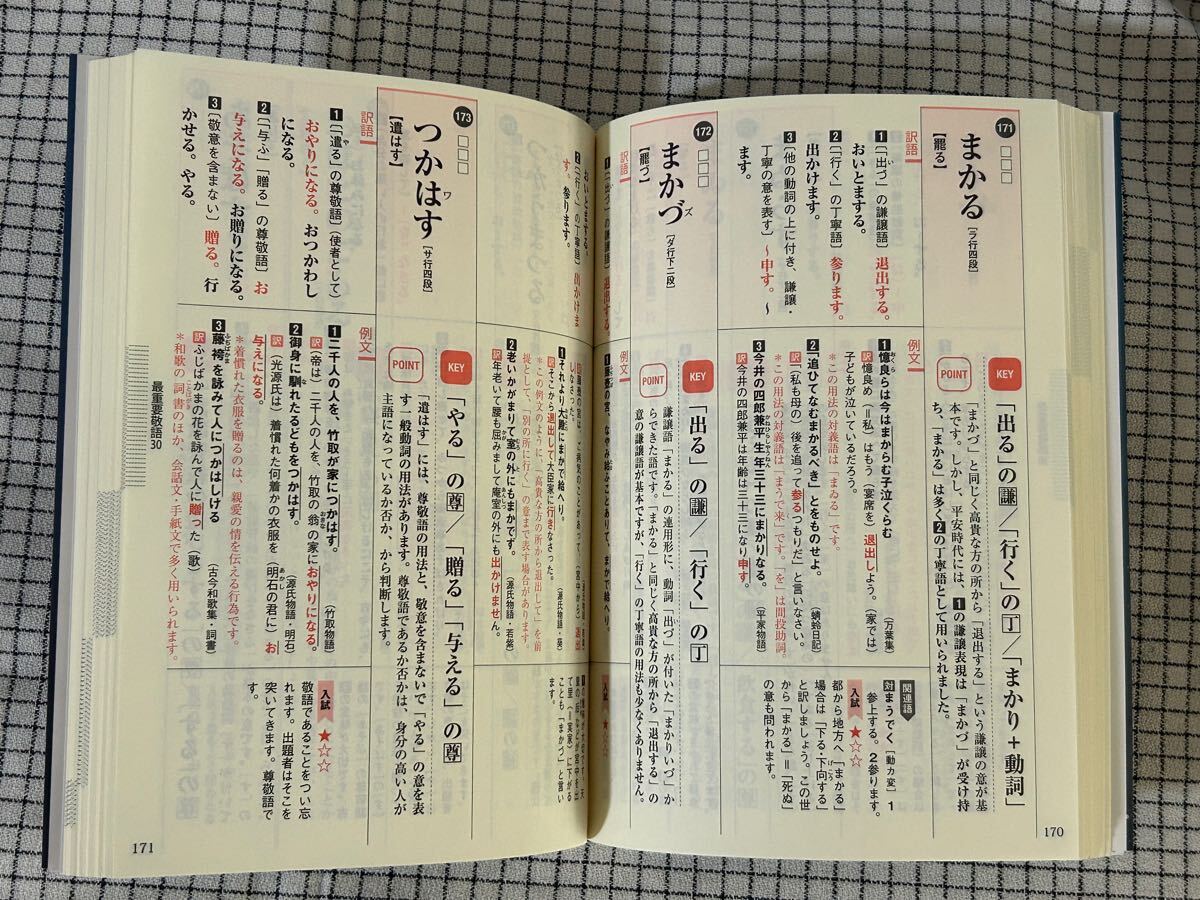 171
まかる
［ラ行四段］
【罷る】
訳語
1〔「出づ」の謙譲語〕退出する。
おいとまする。
2〔「行く」の丁寧語〕参ります。
出かけます。
3〔他の動詞の上に付き、謙譲・
丁寧の意を表す〕～申す。～
ます。
KEY
「出る」の謙／「行く」の丁／「まかり＋動詞」
POINT
「まかづ」と同じく高貴な方の所から「退出する」という謙譲の意が基
本です。しかし、平安時代には、1の謙譲表現は「まかづ」が受け持
ち、「まかる」は多く2の丁寧語として用いられました。
例文
1憶良らは今はまからむ子泣くらむ
（万葉集）
訳憶良め（＝私）はもう（宴席を）退出しよう。（家では）
子どもが泣いているだろう。
＊この用法の対義語は「まゐる」です。
2「追ひてなむまかるべき」とをものせよ。
（蜻蛉日記）
訳「（私も母の）後を追って参るつもりだ」と言いなさい。
＊この用法の対義語は「まうで来」です。「を」は間投助詞。
3今井の四郎兼平生年三十三にまかりなる。
（平家物語）
訳今井の四郎兼平は年齢は三十三になり申す。
関連語
対まうでく［動カ変］1
参上する。2参ります。
入試★☆☆
都から地方へ「まかる」
場合は「下る・下向する」
と訳しましょう。この世
から「まかる」＝「死ぬ」
の意も問われます。
172
まかづ
ズ
［ダ行下二段］
【罷づ】
訳語
1〔「出づ」の謙譲語〕退出する
おいとまする。
2〔「行く」の丁寧語〕出かけま
す。参ります。
KEY
「出る」の謙／「行く」の丁
POINT
謙譲語「まかる」の連用形に、動詞「出づ」が付いた「まかりいづ」か
らできた語です。「まかる」と同じく高貴な方の所から「退出する」の
意の謙譲語が基本ですが、「行く」の丁寧語の用法も少なくありません。
例文
それより大殿にまかで給へり。
（源氏物語・葵）
訳そこから退出して大臣家に行きなさった。
＊この例文のように、「高貴な方の所から退出して」を前
提として、「別の所に行く」の意まで表す場合があります。
2老いかがまりて室の外にもまかでず。
（源氏物語・若紫）
訳年老いて腰も屈みまして庵室の外にも出かけません。
入試★☆☆
て里（＝実家）に下がる
ことも「まかづ」と言い
ます。
170
173
つかはす
ワ
［サ行四段］
【遣はす】
訳語
1〔「遣る」の尊敬語〕（使者として）
おやりになる。おつかわし
になる。
2〔「与ふ」「贈る」の尊敬語〕お
与えになる。お贈りになる。
3〔敬意を含まない〕贈る。行
かせる。やる。
KEY
「やる」の尊／「贈る」「与える」の尊
POINT
「遣はす」には、尊敬語の用法と、敬意を含まないで「やる」の意を表
す一般動詞の用法があります。尊敬語であるか否かは、身分の高い人が
主語になっているか否か、から判断します。
例文
1二千人の人を、竹取が家につかはす。
（竹取物語）
訳（帝は）二千人の人を、竹取の翁の家におやりになる。
2御身に馴れたるどもをつかはす。
（源氏物語・明石）
訳（光源氏は）着慣れた何着かの衣服を（明石の君に）お
与えになる。
＊着慣れた衣服を贈るのは、親愛の情を伝える行為です。
3藤袴を詠みて人につかはしける
（古今和歌集・詞書）
訳ふじばかまの花を詠んで人に贈った（歌）
＊和歌の詞書のほか、会話文・手紙文で多く用いられます。
入試★☆☆
敬語であることをつい忘
れます。出題者はそこを
突いてきます。尊敬語で
す。
最重要敬語30
171